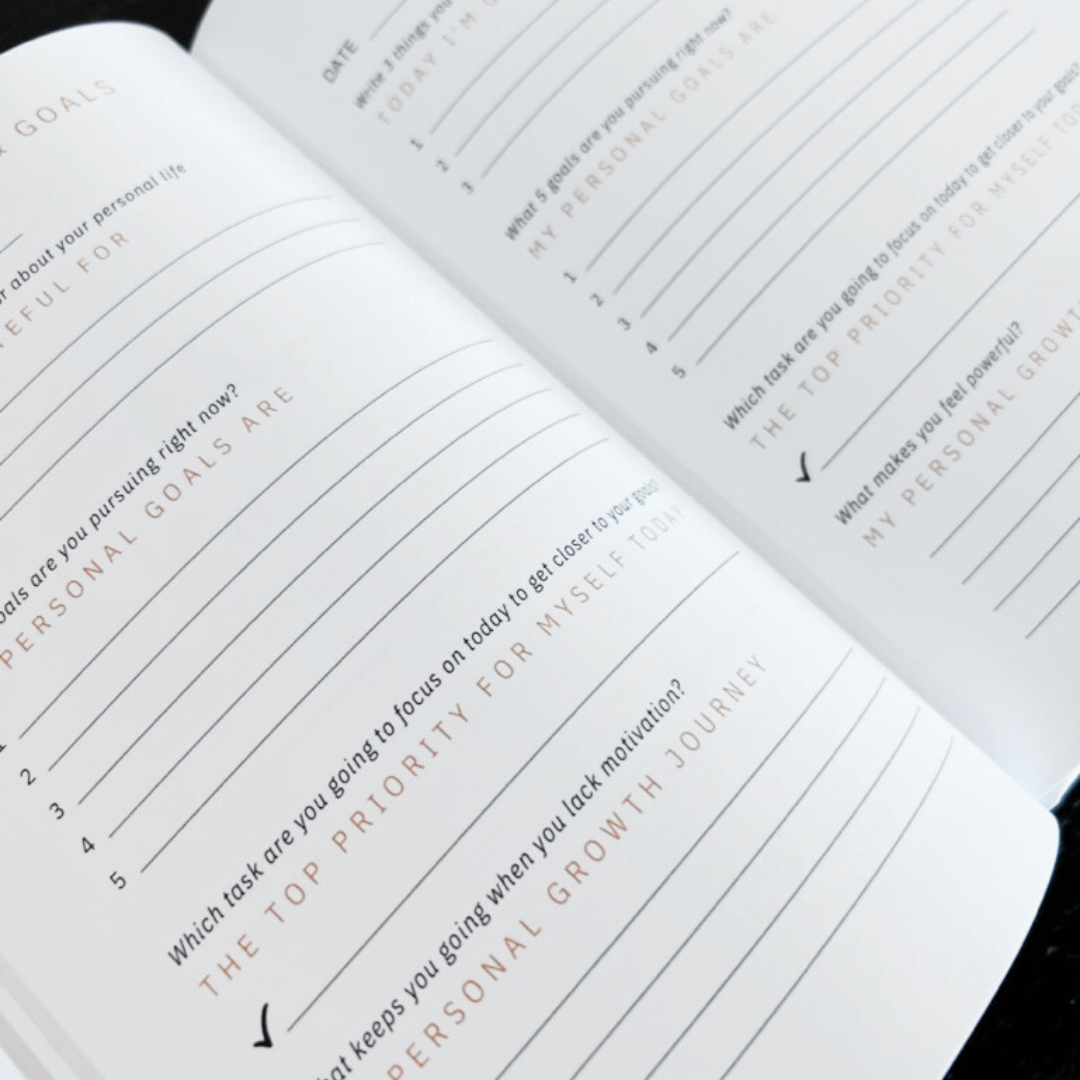 GOALS
about your personal life
EFUL FOR
are you pursuing right now?
PERSONAL GOALS ARE
2
3
4
5
Which task are you going to focus on today to get closer to your goals?
THE TOP PRIORITY FOR MYSELF TODAY
keeps you going when you lack motivation?
PERSONAL GROWTH JOURNEY
DATE
Write 3 things you
TODAY I'M
1
2
3
What 5 goals are you pursuing right now?
MY PERSONAL GOALS ARE
1
2
3
4
5
Which task are you going to focus on today to get closer to your goals?
THE TOP PRIORITY FOR MYSELF
What makes you feel powerful?
MY PERSONAL GROWTH